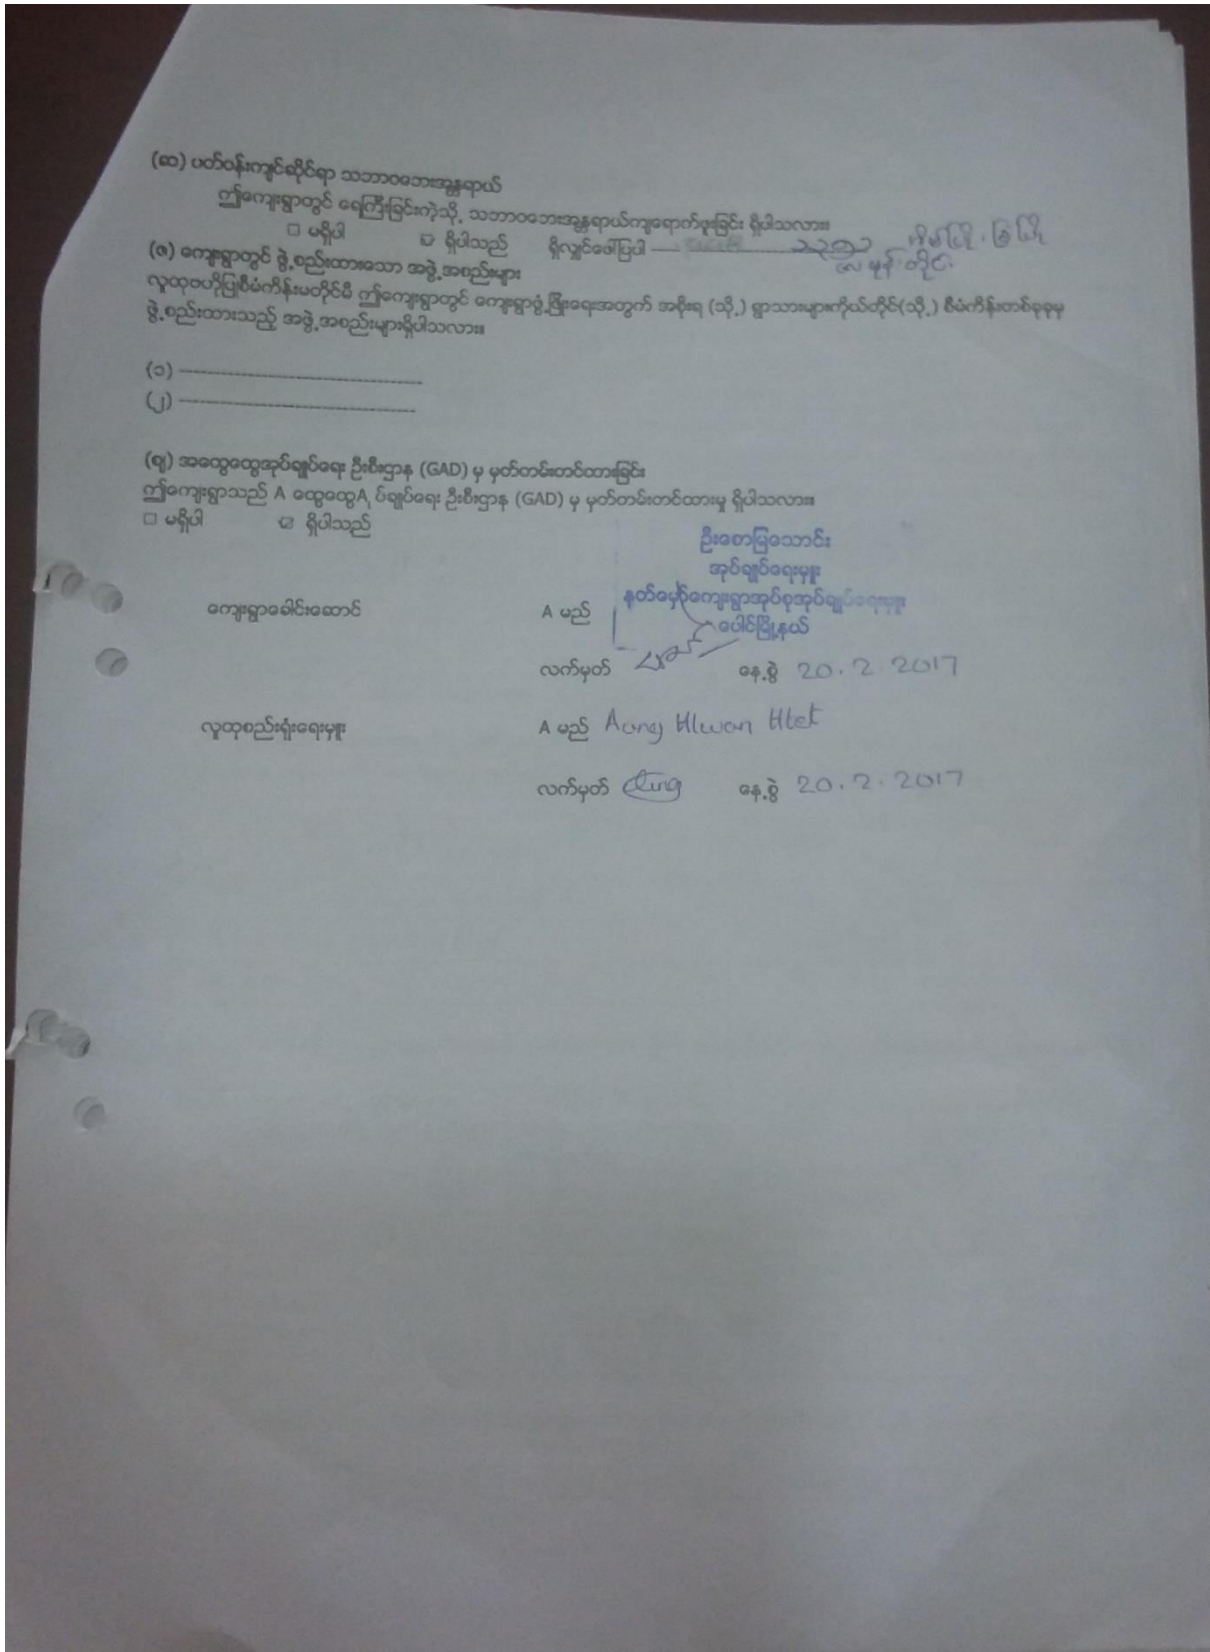 (ဆ) ပတ်ဝန်းကျင်ဆိုင်ရာ သဘာဝဘေးအန္တရာယ်
ဤကျေးရွာတွင် ရေကြီးခြင်းကဲ့သို့ သဘာဝဘေးအန္တရာယ်ကျရောက်ဖူးခြင်း ရှိပါသလား။
□ မရှိပါ ☑ ရှိပါသည် ရှိလျှင်ဖေါ်ပြပါ ---------- ၁၃ခုတွင် အိမ်ပြို၊ ခြံပြို
လေမုန်တိုင်း
(ဇ) ကျေးရွာတွင် ဖွဲ့စည်းထားသော အဖွဲ့အစည်းများ
လူထုဗဟိုပြုစီမံကိန်းမတိုင်မီ ဤကျေးရွာတွင် ကျေးရွာဖွံ့ဖြိုးရေးအတွက် အစိုးရ (သို့) ရွာသားများကိုယ်တိုင်(သို့) စီမံကိန်းတစ်ခုခုမှ
ဖွဲ့စည်းထားသည့် အဖွဲ့အစည်းများရှိပါသလား။
(၁) ----------------------------------------
(၂) ----------------------------------------
(ဈ) အထွေထွေအုပ်ချုပ်ရေး ဦးစီးဌာန (GAD) မှ မှတ်တမ်းတင်ထားခြင်း
ဤကျေးရွာသည် A ထွေထွေA ုပ်ချုပ်ရေး ဦးစီးဌာန (GAD) မှ မှတ်တမ်းတင်ထားမှု ရှိပါသလား။
□ မရှိပါ ☑ ရှိပါသည်
ဦးစောမြသောင်း
အုပ်ချုပ်ရေးမှူး
ကျေးရွာခေါင်းဆောင် A မည် နတ်မှော်ကျေးရွာအုပ်စုအုပ်ချုပ်ရေးမှူး
ပေါင်မြို့နယ်
လက်မှတ် နေ့စွဲ 20.2.2017
လူထုစည်းရုံးရေးမှူး A မည် Aung Hlwan Htet
လက်မှတ် Aung နေ့စွဲ 20.2.2017